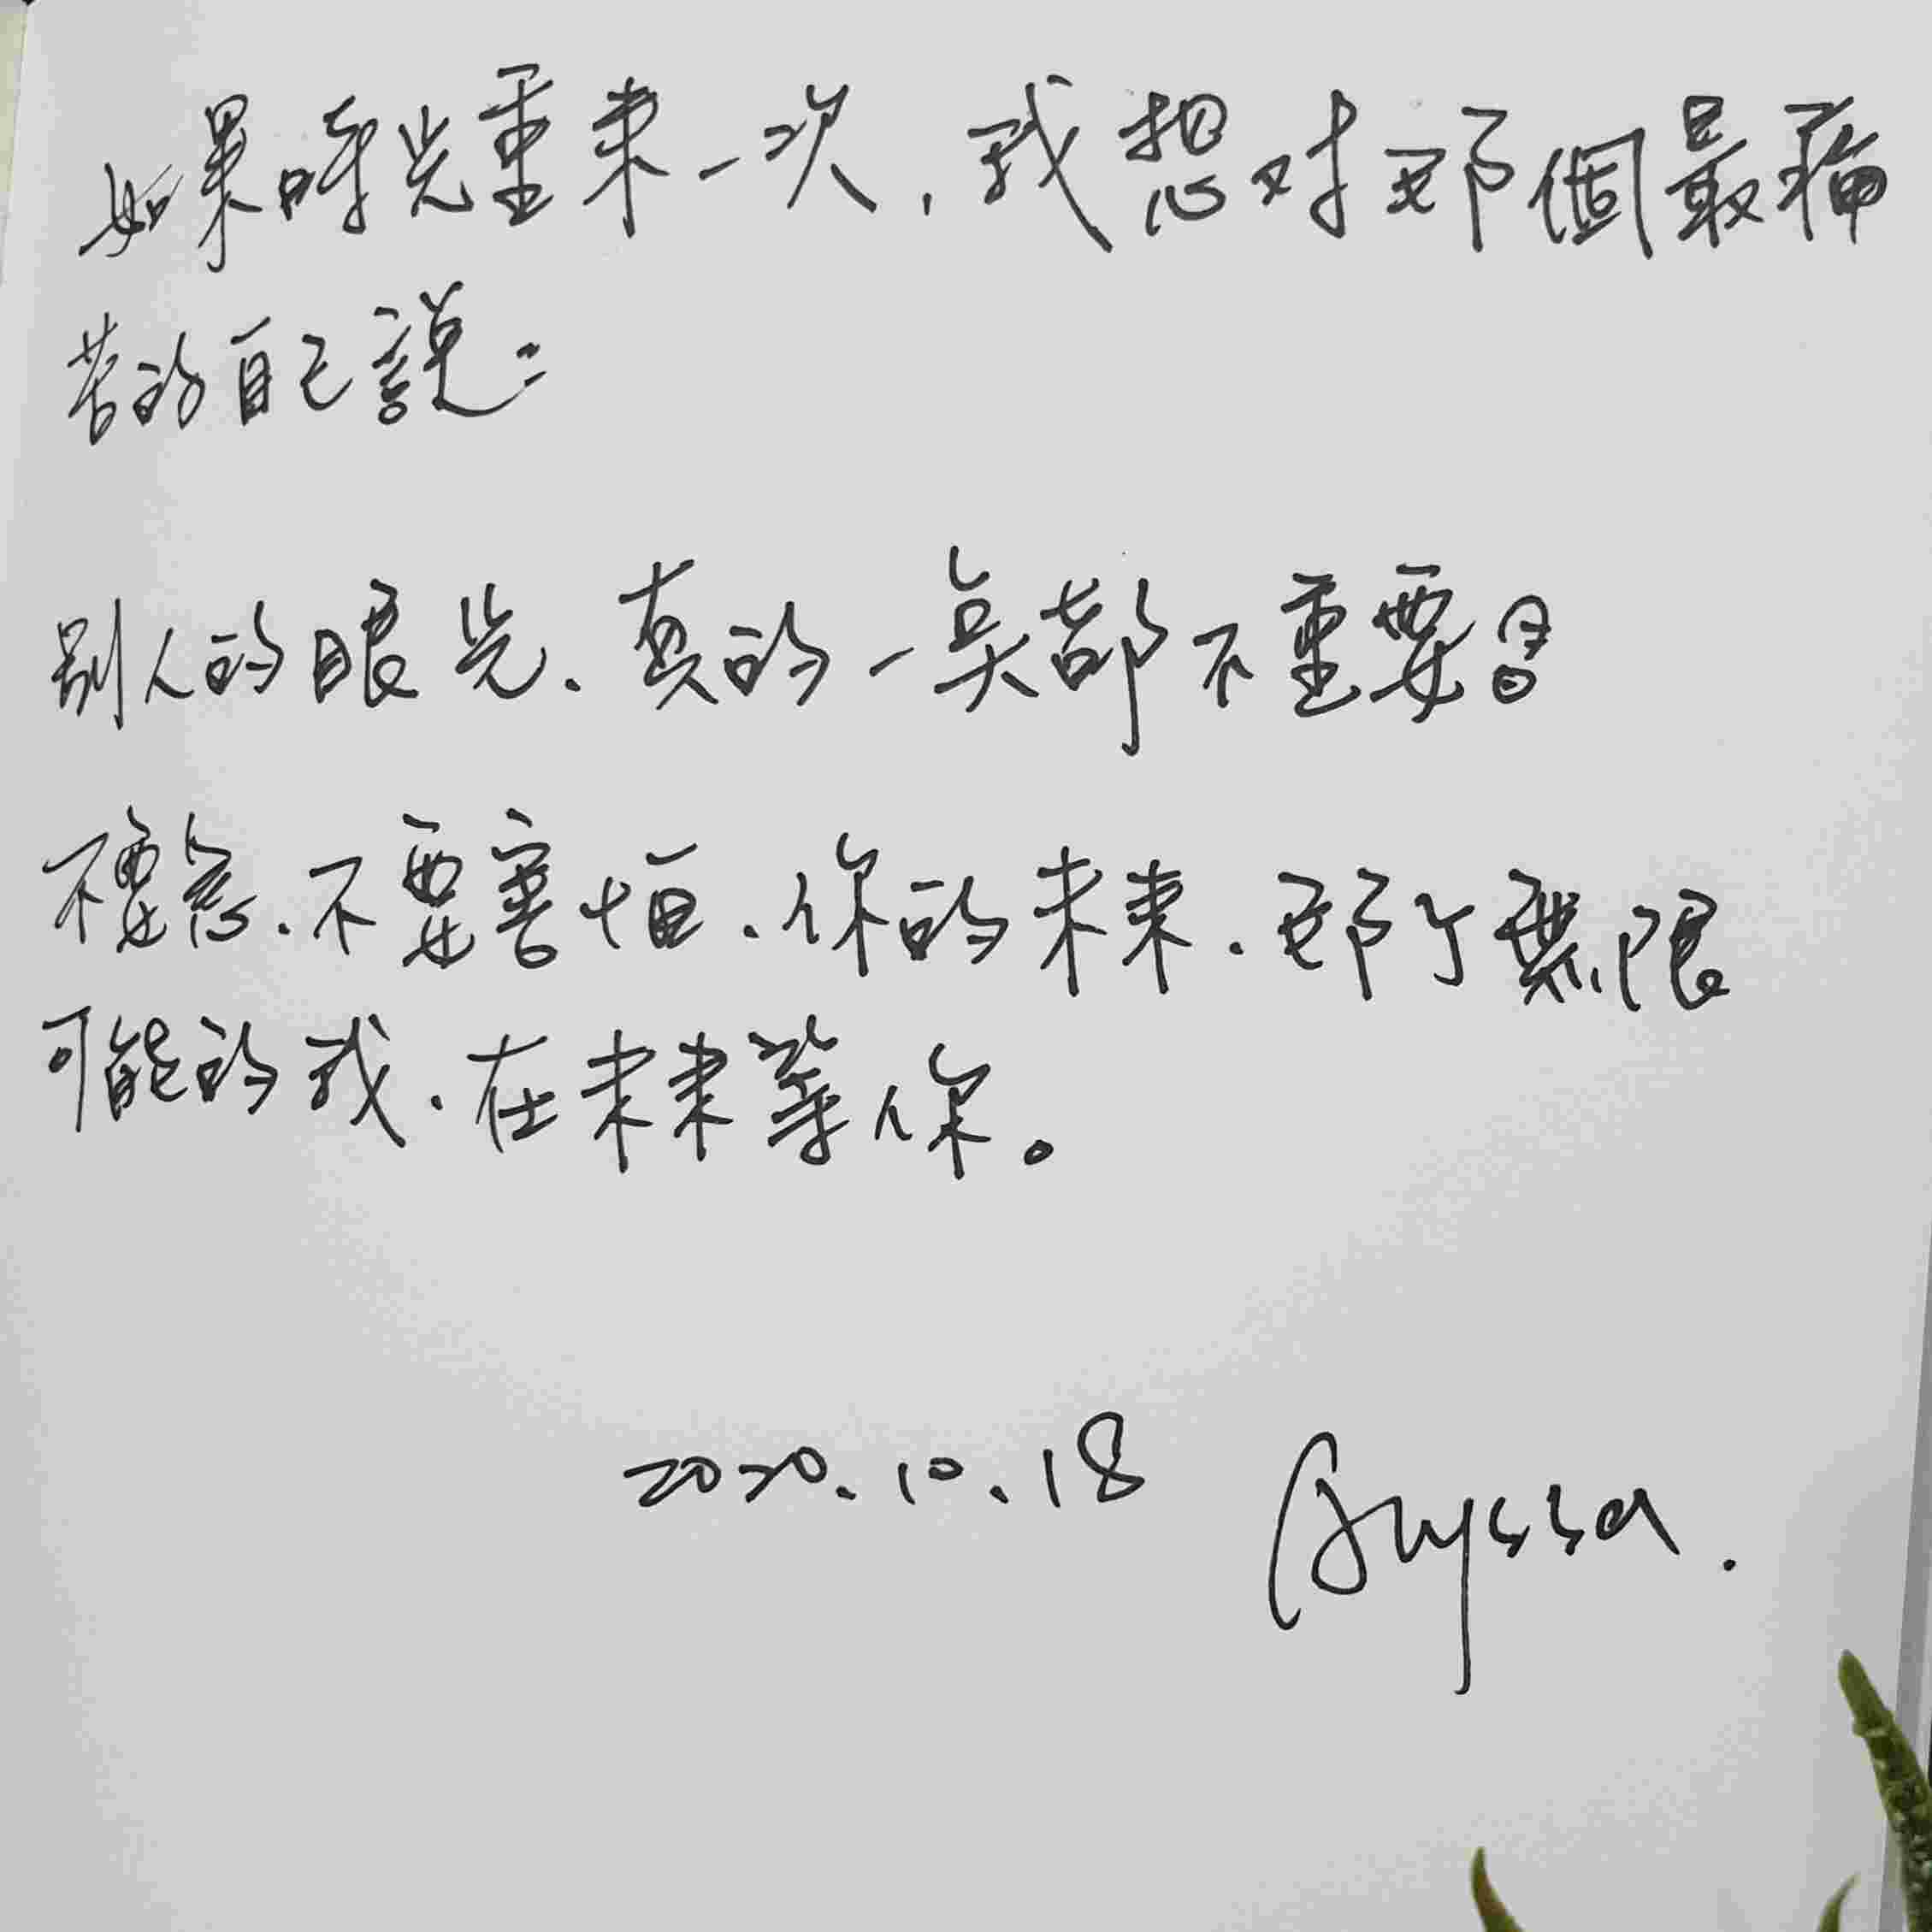 如果時光重来一次，我想对那個最痛
苦的自己說：
别人的眼光、真的一点都不重要!!
不要急、不要害怕、你的未来、那个無限
可能的我、在未来等你。
2020.10.18 Alyssa.